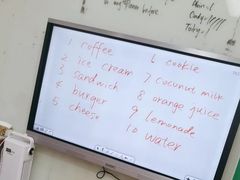 1 coffee
2 ice cream
3 sandwich
4 burger
5 cheese
6 cookie
7 coconut milk
8 orange juice
9 lemonade
10 water